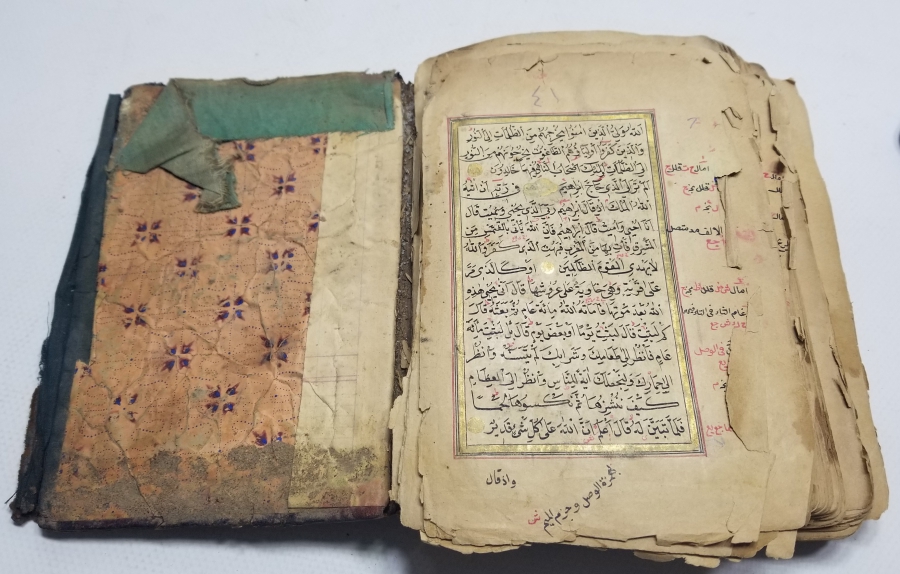 ٤١
الله ولي الذين امنوا يخرجهم من الظلمات الى النور
والذين كفروا اولياؤهم الطاغوت يخرجونهم من النور
الى الظلمات اولئك اصحاب النار هم فيها خالدون
الم تر الى الذي حاج ابرهيم في ربه ان اتيه
الله الملك اذ قال ابرهيم ربي الذي يحيي ويميت قال
انا احيي واميت قال ابرهيم فان الله يأتي بالشمس من
المشرق فأت بها من المغرب فبهت الذي كفر والله
لا يهدي القوم الظالمين او كالذي مر
على قرية وهي خاوية على عروشها قال انى يحيي هذه
الله بعد موتها فأماته الله مائة عام ثم بعثه قال
كم لبثت قال لبثت يوما او بعض يوم قال بل لبثت مائة
عام فانظر الى طعامك وشرابك لم يتسنه وانظر
الى حمارك ولنجعلك اية للناس وانظر الى العظام
كيف ننشزها ثم نكسوها لحما
فلما تبين له قال اعلم ان الله على كل شيء قدير
واذ قال
بهمزة الوصل وجزم الميم